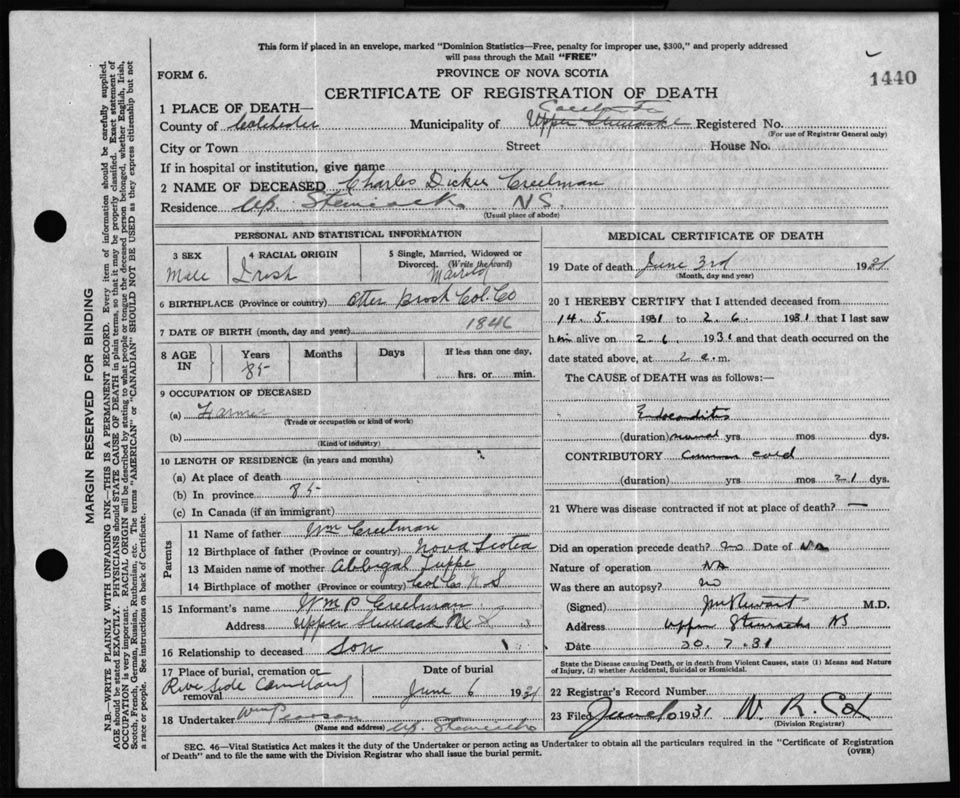 This form if placed in an envelope, marked "Dominion Statistics—Free, penalty for improper use, $300," and properly addressed
will pass through the Mail "FREE"
FORM 6.
PROVINCE OF NOVA SCOTIA
1440
CERTIFICATE OF REGISTRATION OF DEATH
1 PLACE OF DEATH—
County of Colchester Municipality of Upper Stewiacke Registered No.
(For use of Registrar General only)
City or Town Street House No.
If in hospital or institution, give name
2 NAME OF DECEASED Charles Dickie Creelman
Residence Up. Stewiacke N.S.
(Usual place of abode)
PERSONAL AND STATISTICAL INFORMATION
3 SEX 4 RACIAL ORIGIN 5 Single, Married, Widowed or
Divorced. (Write the word)
Male Irish Married
6 BIRTHPLACE (Province or country) Otter Brook Col. Co
7 DATE OF BIRTH (month, day and year) 1846
8 AGE IN Years Months Days If less than one day,
85 hrs. or min.
9 OCCUPATION OF DECEASED
(a) Farmer
(Trade or occupation or kind of work)
(b)
(Kind of industry)
10 LENGTH OF RESIDENCE (in years and months)
(a) At place of death
(b) In province 85
(c) In Canada (if an immigrant)
Parents
11 Name of father Wm Creelman
12 Birthplace of father (Province or country) Nova Scotia
13 Maiden name of mother Abbigal Tuppe
14 Birthplace of mother (Province or country) Col. Co N S
15 Informant's name Wm P. Creelman
Address Upper Stewiack
16 Relationship to deceased Son
17 Place of burial, cremation or removal Date of burial
River Side June 6 1931
18 Undertaker Wm Pearson
(Name and address) Up. Stewiacke
MEDICAL CERTIFICATE OF DEATH
19 Date of death June 3rd 1931
(Month, day and year)
20 I HEREBY CERTIFY that I attended deceased from
14. 5. 1931 to 2. 6. 1931 that I last saw
him alive on 2. 6. 1931 and that death occurred on the
date stated above, at 2 a. m.
The CAUSE of DEATH was as follows:—
Endocarditis
(duration) several yrs mos dys.
CONTRIBUTORY Common cold
(duration) yrs mos 21 dys.
21 Where was disease contracted if not at place of death? —
Did an operation precede death? no Date of NA
Nature of operation NA
Was there an autopsy? no
(Signed) M.D.
Address Upper Stewiacke NS
Date 20. 7. 31
State the Disease causing Death, or in death from Violent Causes, state (1) Means and Nature
of Injury, (2) whether Accidental, Suicidal or Homicidal.
22 Registrar's Record Number
23 Filed June 6 1931 W. R. Cox
(Division Registrar)
SEC. 46—Vital Statistics Act makes it the duty of the Undertaker or person acting as Undertaker to obtain all the particulars required in the "Certificate of Registration
of Death" and to file the same with the Division Registrar who shall issue the burial permit.
(OVER)
MARGIN RESERVED FOR BINDING
N.B.—WRITE PLAINLY WITH UNFADING INK—THIS IS A PERMANENT RECORD. Every item of information should be carefully supplied.
AGE should be stated EXACTLY. PHYSICIANS should STATE CAUSE OF DEATH in plain terms, so that it may be properly classified. Exact statement of
OCCUPATION is very important. RACIAL ORIGIN will be described by stating to what people or tongue the deceased person belonged, whether English, Irish,
Scotch, French, German, Russian, Ruthenian, etc. The terms "AMERICAN" or "CANADIAN" SHOULD NOT BE USED as they express citizenship but not
a race or people. See instructions on back of Certificate.